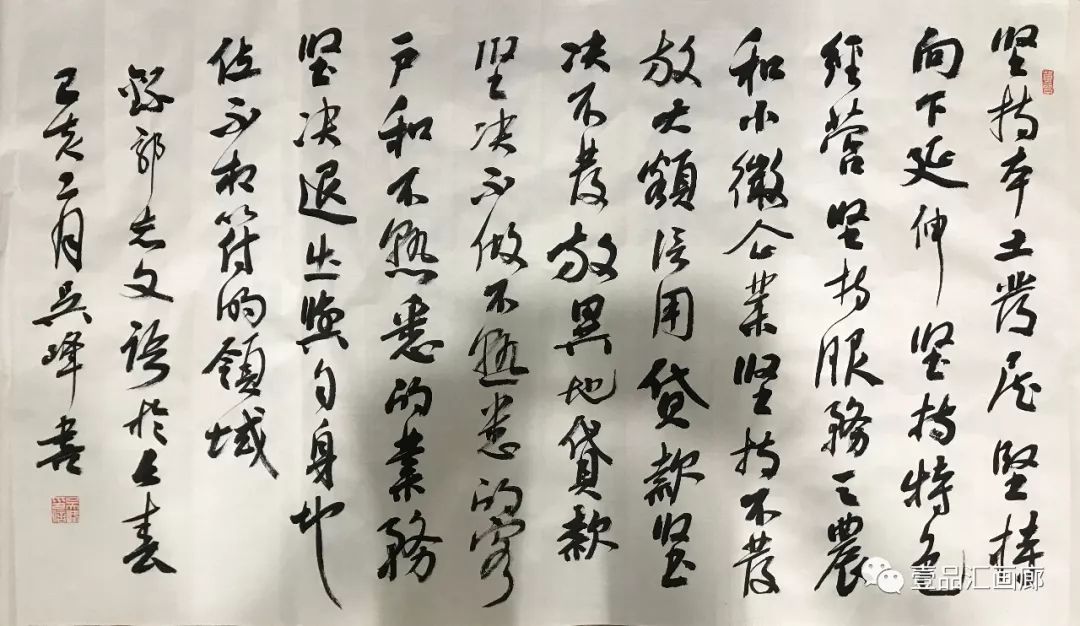 坚持本土發展堅持
向下延伸坚持特色
經營坚持服務三農
和小微企業坚持不發
放大額信用貸款坚
决不發放異地貸款
坚决不做不熟悉的客
户和不熟悉的業務
坚决退出與自身地
位不相符的領域
錄郭志文語於长春
己亥二月吴峰書
壹品汇画廊